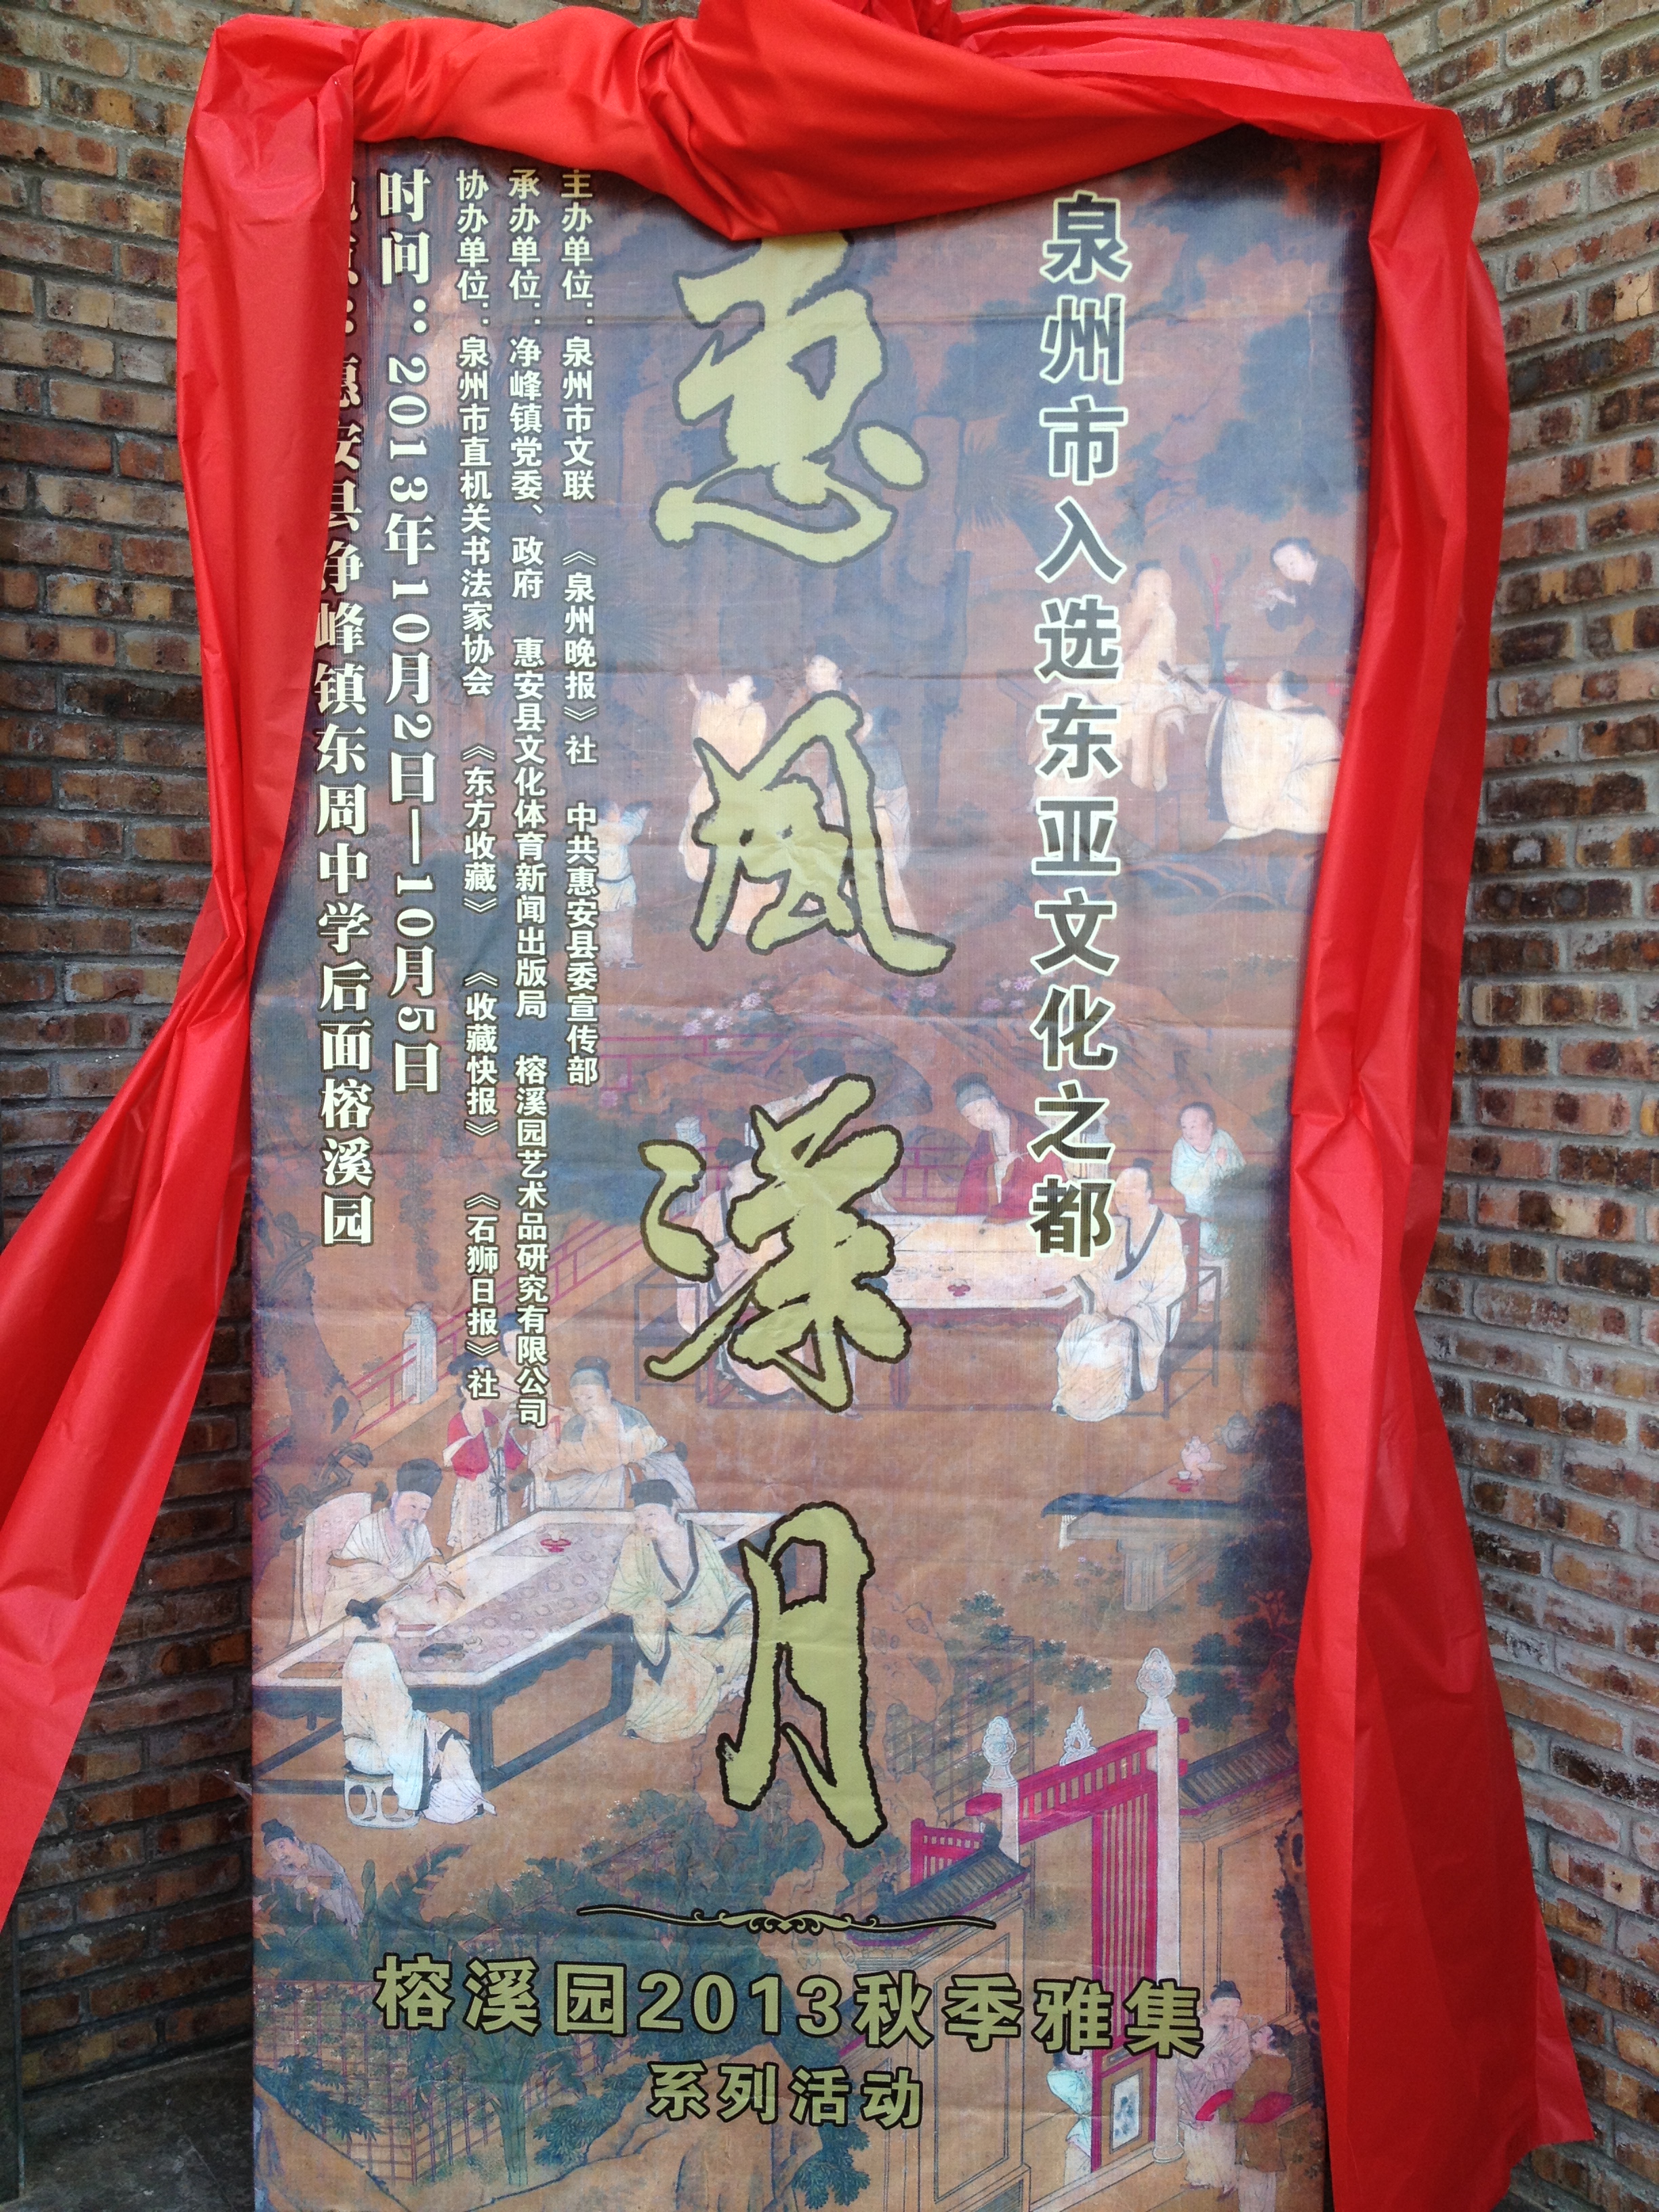 泉州市入选东亚文化之都
惠風漾月
主办单位：泉州市文联 《泉州晚报》社 中共惠安县委宣传部
承办单位：净峰镇党委、政府 惠安县文化体育新闻出版局 榕溪园艺术品研究有限公司
协办单位：泉州市直机关书法家协会 《东方收藏》 《收藏快报》 《石狮日报》社
时间：2013年10月2日—10月5日
地点：惠安县净峰镇东周中学后面榕溪园
榕溪园2013秋季雅集
系列活动